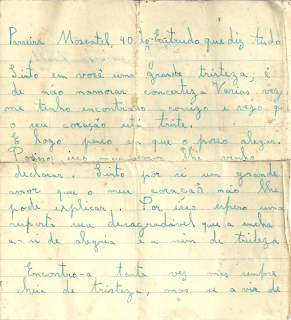 Parreira Moscatel, 40 que diz tudo
Sinto em você uma grande tristeza; é
de não namorar concerteza Varias vez
me tenho encontrado comigo e vejo q
o seu coração está triste.
E logo que o pouco alegar.
Por isso lhe venho
declarar. Sinto por si um grande
amor que o meu coração não lhe
pode explicar. Por isso espero uma
resposta sua desagradável que a encha
a-si de alegria e a mim de tristeza
Encontro-a tanta vez mas sempre
cheia de tristeza, mas se a vir de